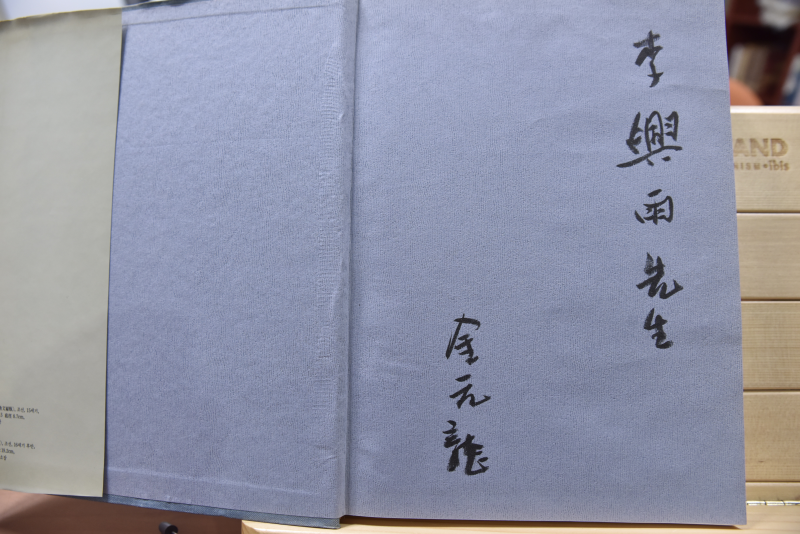 李興雨先生
金元龍
AND
ibis